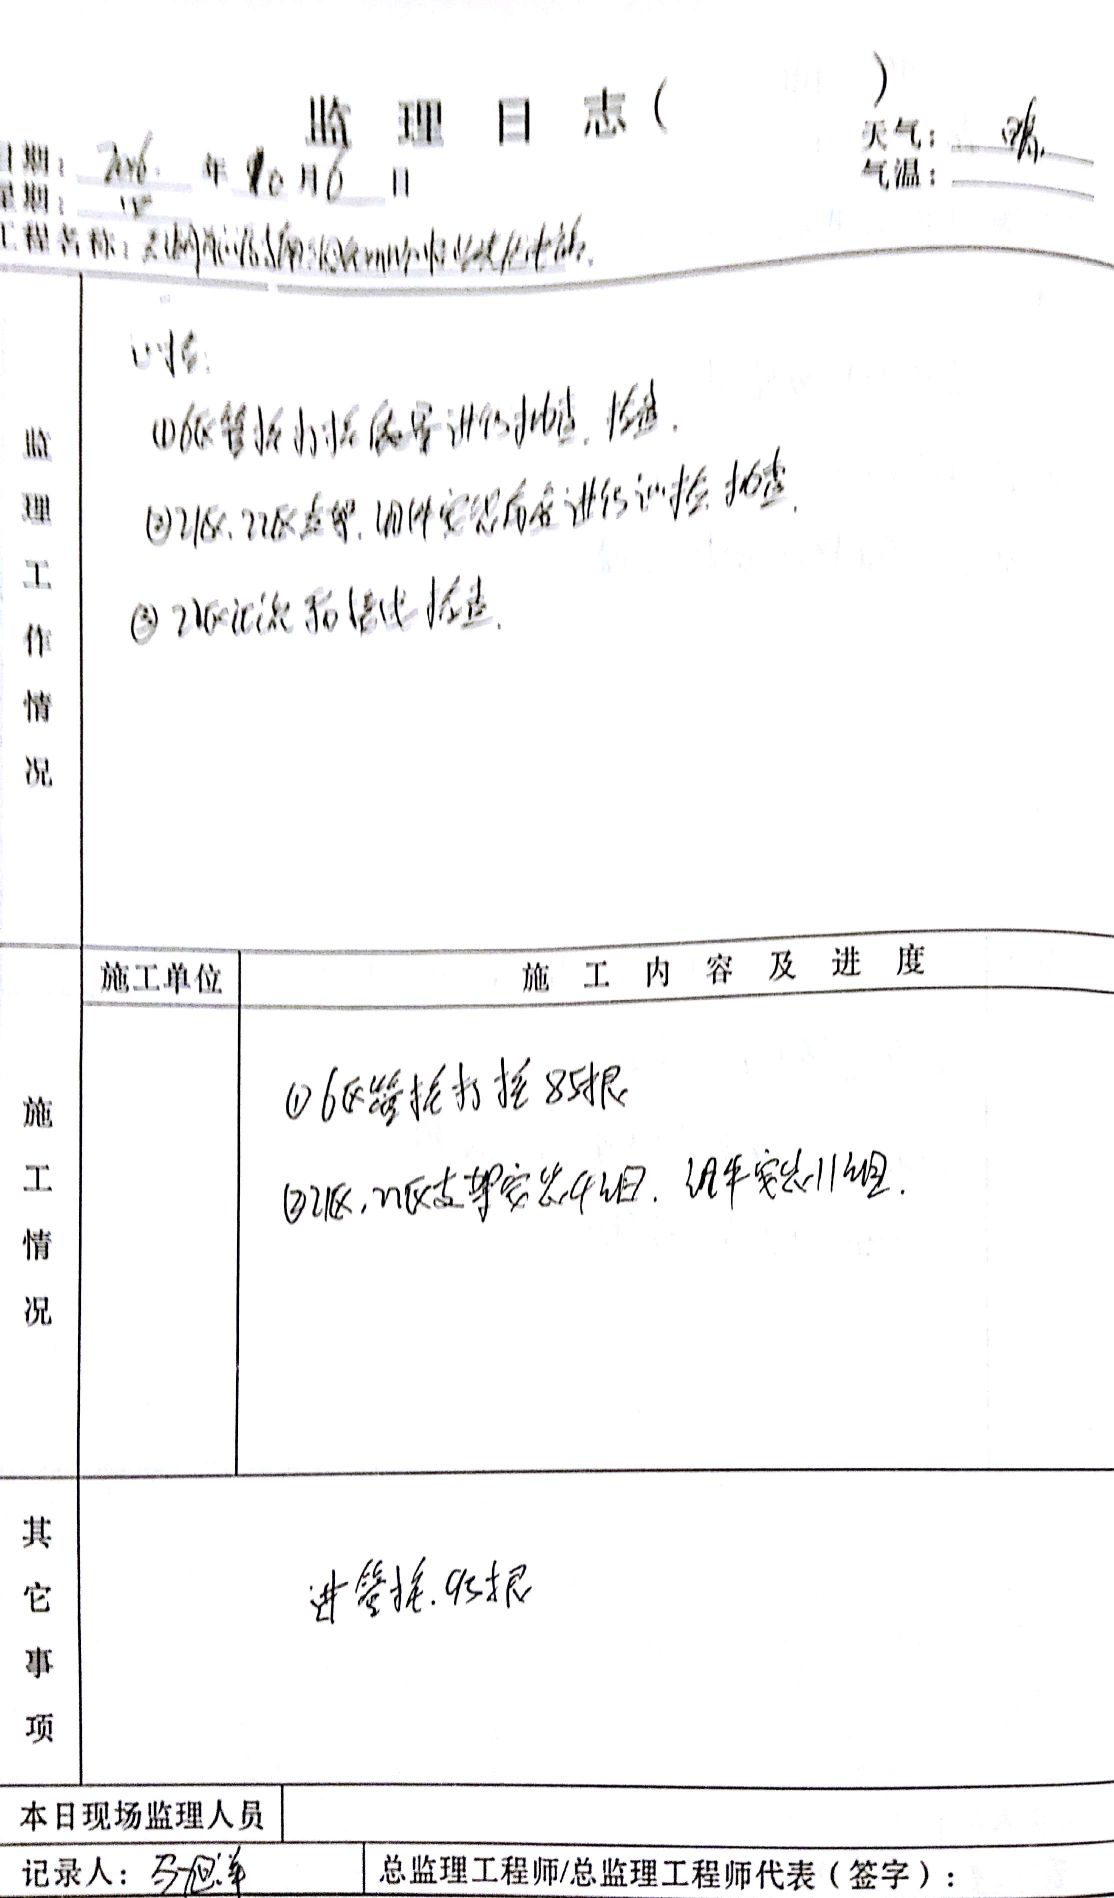 监理日志( )
日期: 2016 年 10 月 6 日
天气: 晴
星期: 四
气温:
工程名称:
监理工作情况
巡检:
①6区管桩打桩质量进行抽查、检查.
②21区、22区支架、组件安装质量进行巡检、抽查.
③21区 检查.
施工情况
施工单位
施工内容及进度
①6区管桩打桩85根
②21区、22区支架安装4组. 组件安装11组.
其它事项
进管桩.95根
本日现场监理人员
记录人:
总监理工程师/总监理工程师代表(签字):